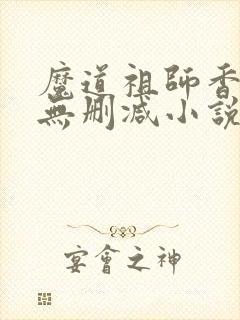 魔道祖師香
無刪減小說
宴會之神